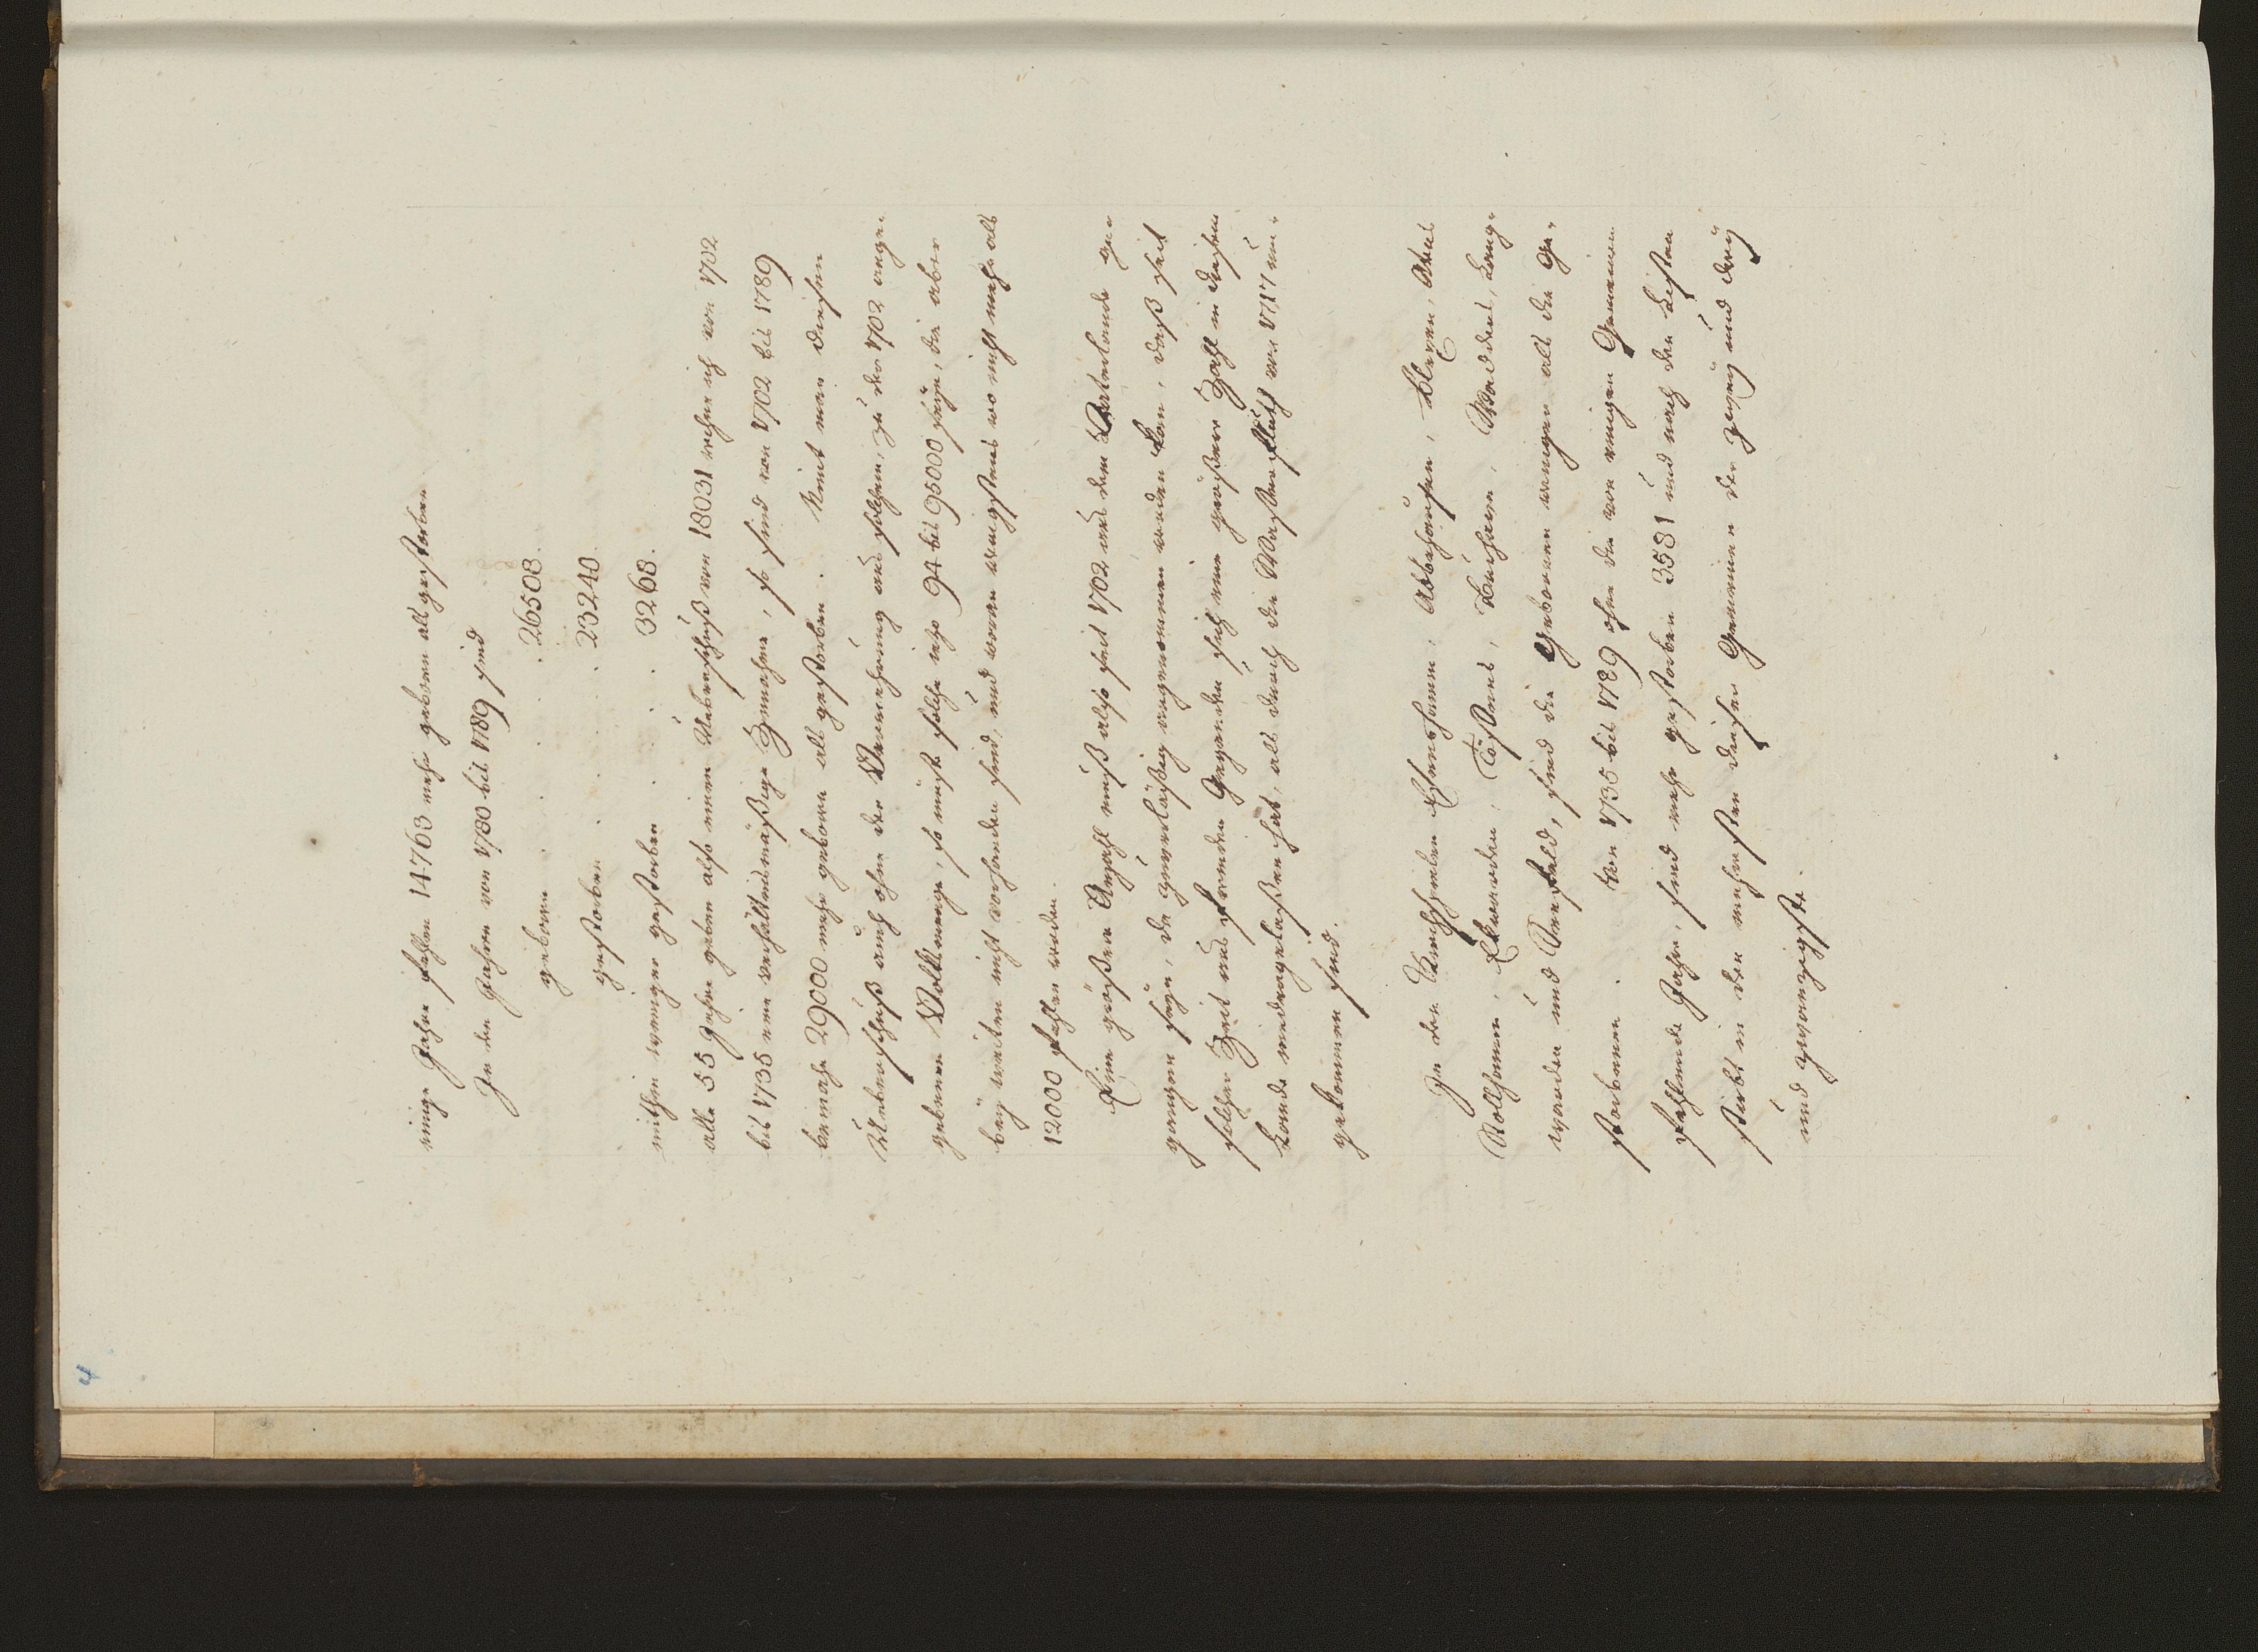 einige Jahre fehlen 14763 mehr geboren als gestorben
In den Jahren von 1780 bis 1789 sind
geboren . . . . 26508.
gestorben . . . . 23240.
mithin weniger gestorben . . . 3268.
alle 55 Jahre geben also einen Ueberschuß von 18031 rechne ich von 1702
bis 1735 eine verhältnismäßige Zunahme, so sind von 1702 bis 1789
beinahe 29000 mehr geboren als gestorben. Nimt man diesen
Ueberschuß auch ohne der Vermehrung aus solchem, zu der 1702 ange-
gebenen Volkmenge, so müste solche jezo 94 bis 95000 seyn, die aber
bey weiten nicht vorhanden sind, und woran wenigstens wo nicht mehr als
12000 fehlen werden.
Eine größere Anzahl muß also seit 1702 aus dem Vaterlande ge-
gangen seyn, da zuverläßig angenommen werden kan, daß seit
solcher Zeit aus fremden Gegenden sich eine größere Zahl in diesem
Lande niedergelaßen hat, als durch die Wasserfluth von 1717 um-
gekommen sind.
In den Kirchspielen Esenshamm, Abbehausen, Blexen, Atens
Rollhamm, Eckwarden, Tossens, Burhave, Waddens, Lang-
warden und Seefeld, sind die Geborenen weniger als die Ge-
storbenen. Von 1735 bis 1789 ohne die von einigen Gemeinen
fehlende Jahre, sind mehr gestorben 3581 und nach den Listen
stirbt in den mehresten dieser Gemeinen der zwey und drey
und zwanzigste.
4